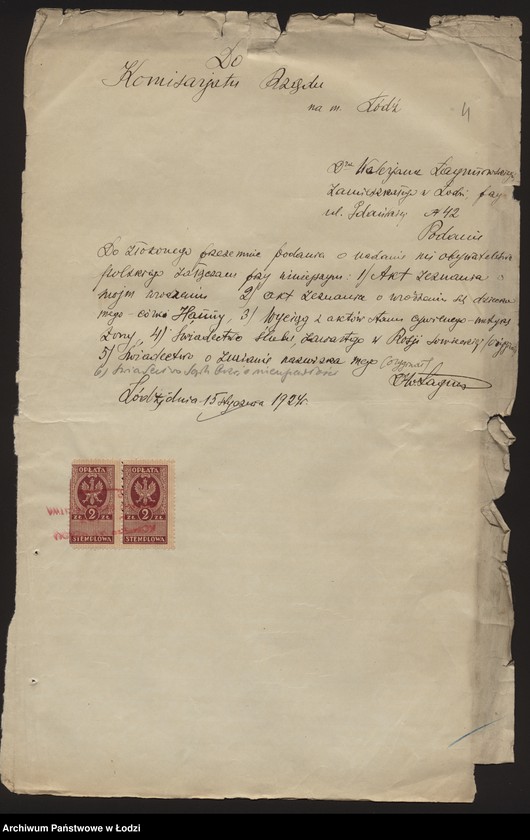 Do
Komisarjatu Rządu
na m. Łódź
4
Dra Walerjana Łagunowskiego
zamieszkałego w Łodzi przy
ul. Gdańskiej № 42
Podanie
Do złożonego przezemnie podania o nadanie mi obywatelstwa
polskiego załączam przy niniejszym: 1) Akt zeznania o
mojem urodzeniu 2) akt zeznania o urodzeniu się
mego - córki Hanny, 3) Wyciąg z aktów stanu cywilnego - metrykę
żony, 4) Świadectwo ślubu, zawartego w Rosji sowieckiej
5) Świadectwo o zmianie nazwiska mego (oryginał)
6) Świadectwo
Łódź, dnia 15 stycznia 1924
OPŁATA OPŁATA
ZŁ. 2 ZŁ. ZŁ. 2 ZŁ.
STEMPLOWA STEMPLOWA
Archiwum Państwowe w Łodzi